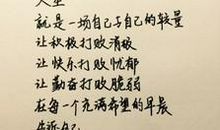 人生
就是一场自己于自己的较量
让积极打败消极
让快乐打败忧郁
让勤奋打败脆弱
在每一个充满希望的早晨
告诉自己